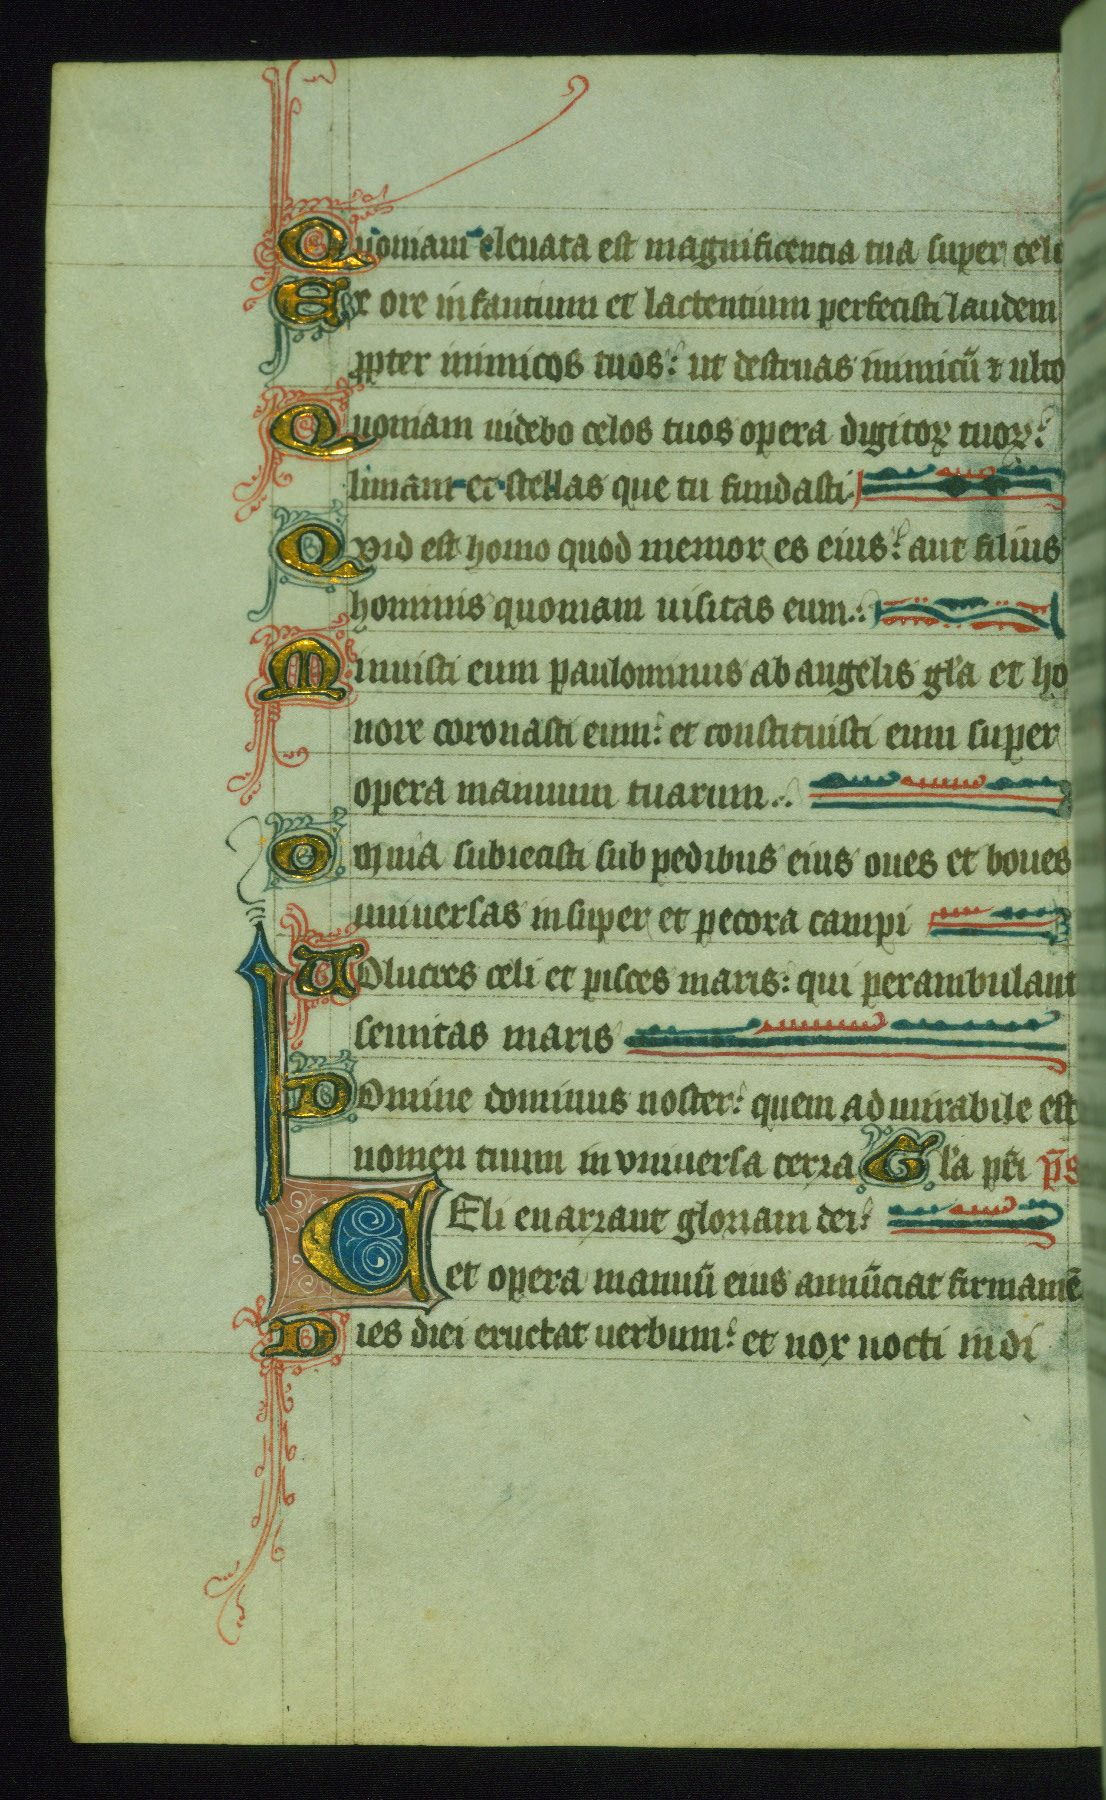 Quoniam eleuata est magnificencia tua super celi
Ex ore infantium et lactentium perfecisti laudem
ꝓpter inimicos tuos: ut destruas inimicū ⁊ ulto
Quoniam uidebo celos tuos opera digitoꝝ tuoꝝ:
lunam et stellas que tu fundasti
Quid est homo quod memor es eius: aut filius
hominis quoniam uisitas eum
Minuisti eum paulominus ab angelis gl'a et ho
nore coronasti eum: et constituisti eum super
opera manuum tuarum
Omnia subiecisti sub pedibus eius oues et boues
uniuersas insuper et pecora campi
Uolucres celi et pisces maris: qui perambulant
semitas maris
Domine dominus noster: quem admirabile est
nomen tuum in vniuersa terra Gl'a pr̄i p̄s
Celi enarrant gloriam dei:
et opera manuū eius annūciat firmamē
Dies diei eructat uerbum: et nox nocti indi